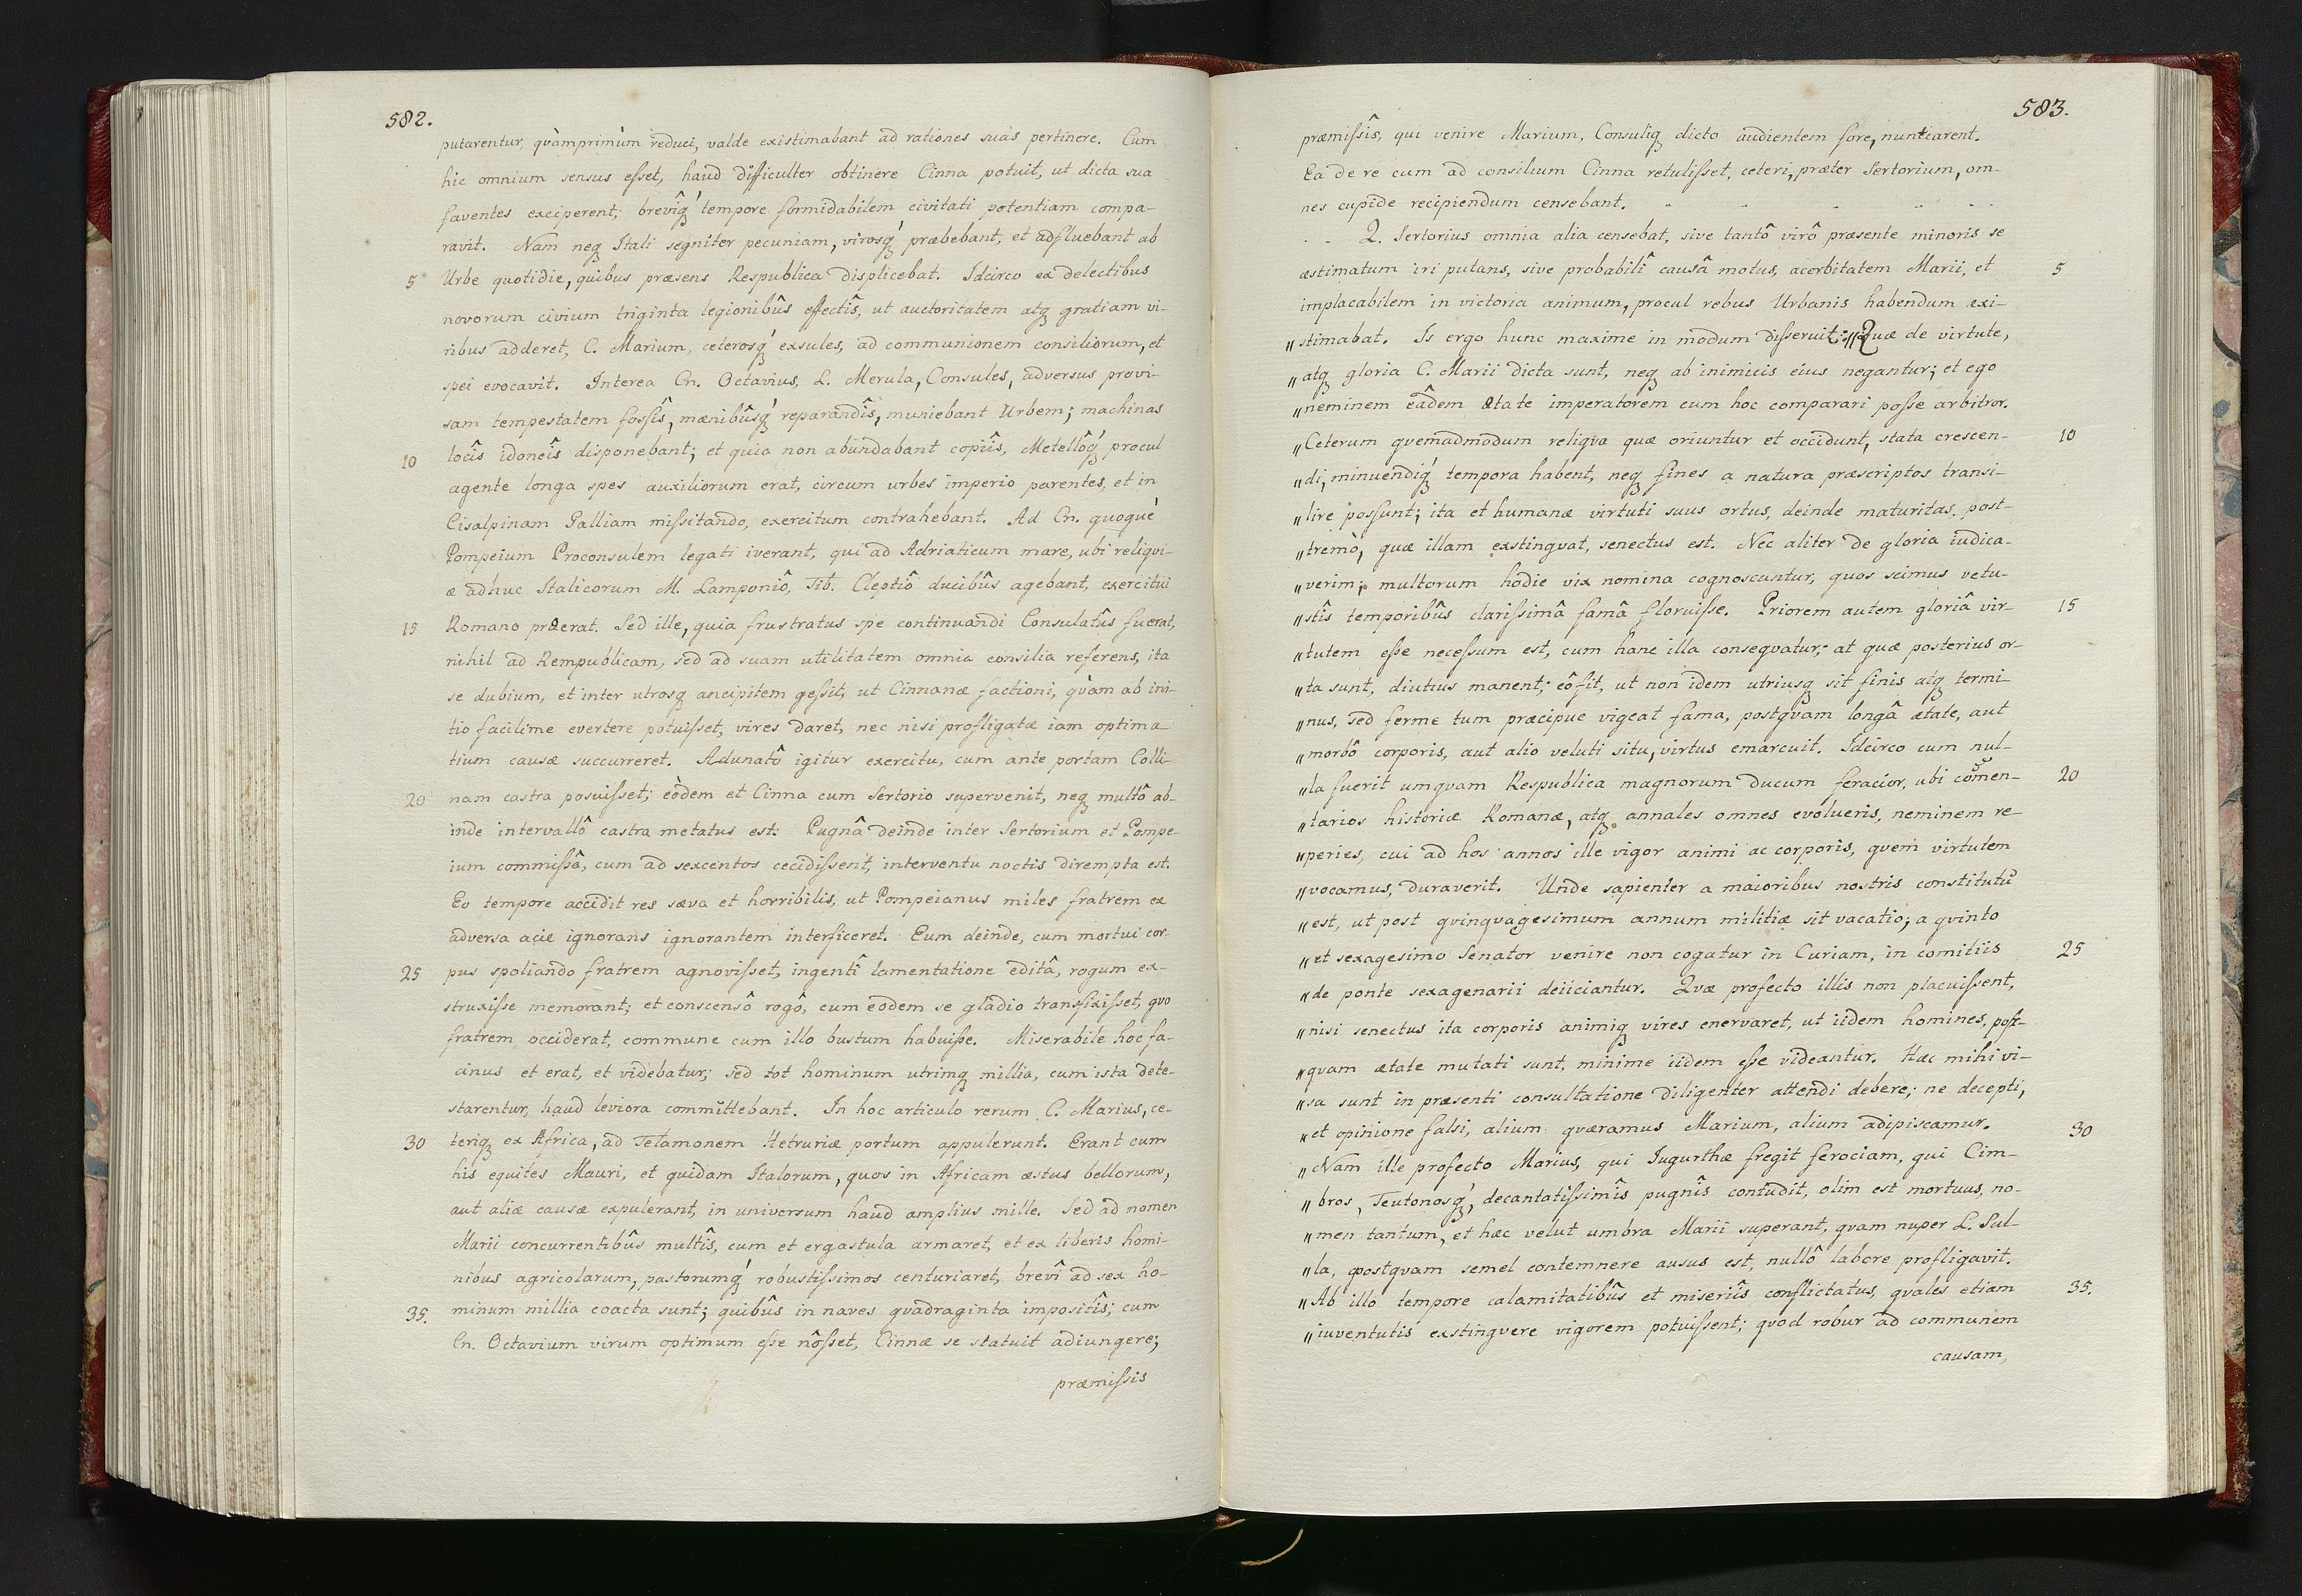 582.
putarentur, qvàmprimùm reduci, valde existimabant ad rationes suas pertinere. Cum
hic omnium sensus eſset, haud difficulter obtinere Cinna potuit, ut dicta sua
faventes exciperent; brevîq́ tempore formidabilem civitati potentiam compa-
ravit. Nam neq Itali segniter pecuniam, virosq́ præbebant, et adfluebant ab
5 Urbe quotidie, quibus præsens Respublica displicebat. Idcirco ex delectibus
novorum civium triginta legionibûs effectîs, ut auctoritatem atq gratiam vi-
ribus adderet, C. Marium, ceterosq́ exsules, ad communionem consiliorum, et
spei evocavit. Interea Cn. Octavius, L. Merula, Consules, adversus provi-
sam tempestatem foſsîs, mænibûsq́ reparandîs, muniebant Urbem; machinas
10 locîs idoneîs disponebant; et quia non abundabant copiîs, Metellôq́ procul
agente longa spes auxiliorum erat, circum urbes imperio parentes, et in
Cisalpinam Galliam miſsitando, exercitum contrahebant. Ad Cn. quoque
Pompeium Proconsulem legati iverant, qui ad Adriaticum mare, ubi reliqvi-
æ adhuc Italicorum M. Lamponiô, Tib. Cleptiô ducibûs agebant, exercitui
15 Romano præerat. Sed ille, quia frustratus spe continuandi Consulatûs fuerat,
nihil ad Rempublicam, sed ad suam utilitatem omnia consilia referens, ita
se dubium, et inter utrosq ancipitem geſsit, ut Cinnanæ factioni, qvam ab ini-
tio facilime evertere potuiſset, vires daret, nec nisi profligatæ iam optima
tium causæ succurreret. Adunatô igitur exercitu, cum ante portam Colli-
20 nam castra posuiſset; eòdem et Cinna cum Sertorio supervenit, neq multô ab-
inde intervallô castra metatus est. Pugnâ deinde inter Sertorium et Pompe-
ium commiſsâ, cum ad sexcentos cecidiſsent, interventu noctis dirempta est.
Eo tempore accidit res sæva et horribilis, ut Pompeianus miles fratrem ex
adversa acie ignorans ignorantem interficeret. Eum deinde, cum mortui cor-
25 pus spoliando fratrem agnoviſset, ingentî lamentatione editâ, rogum ex-
struxiſse memorant; et conscensô rogô, cum eodem se gladio transfixiſset, qvo
fratrem occiderat, commune cum illo bustum habuiſse. Miserabile hoc fa-
cinus et erat, et videbatur; sed tot hominum utrimq millia, cum ista dete-
starentur, haud leviora committebant. In hoc articulo rerum C. Marius, ce-
30 teriq ex Africa, ad Telamonem Hetruriæ portum appulerunt. Erant cum
his equites Mauri, et quidam Italorum, quos in Africam æstus bellorum,
aut aliæ causæ expulerant, in universum haud amplius mille. Sed ad nomen
Marii concurrentibûs multîs, cum et ergastula armaret, et ex liberis homi-
nibus agricolarum, pastorumq́ robustiſsimos centuriaret, brevî ad sex ho-
35. minum millia coacta sunt; quibûs in naves qvadraginta impositîs; cum
Cn. Octavium virum optimum eſse nôſset, Cinnæ se statuit adiungere;
præmiſsis
583.
præmiſsîs, qui venire Marium, Consuliq dicto audientem fore, nuntiarent.
Ea de re cum ad consilium Cinna retuliſset, ceteri, præter Sertorium, om-
nes cupide recipiendum censebant.
Q. Sertorius omnia alia censebat, sive tantô virô præsente minoris se
æstimatum iri putans, sive probabilî causâ motus, acerbitatem Marii, et 5
implacabilem in victoria animum, procul rebus Urbanis habendum exi-
„ stimabat. Is ergo hunc maxime in modum diſseruit: „Quæ de virtute,
„ atq gloria C. Marii dicta sunt, neq ab inimicis eius negantur; et ego
„ neminem eâdem ætate imperatorem cum hoc comparari poſse arbitror.
„ Ceterum qvemadmodum reliqva quæ oriuntur et occidunt, stata crescen- 10
„ di, minuendiq́ tempora habent, neq fines a natura præscriptos transi-
„ lire poſsunt; ita et humanæ virtuti suus ortus, deinde maturitas, post-
„ tremò, quæ illam exstingvat, senectus est. Nec aliter de gloria iudica-
„ verim; multorum hodie vix nomina cognoscuntur, quos scimus vetu-
„ stîs temporibûs clariſsimâ famâ floruiſse. Priorem autem gloriâ vir- 15
„ tutem eſse neceſsum est, cum hanc illa conseqvatur; at quæ posterius or-
„ ta sunt, diutius manent; eô fit, ut non idem utriusq sit finis atq termi-
„ nus, sed ferme tum præcipue vigeat fama, postqvam longâ ætate, aut
„ morbô corporis, aut alio veluti situ, virtus emarcuit. Idcirco cum nul-
„ la fuerit umqvam Respublica magnorum ducum feracior, ubi com̃en- 20
„ tarios historiæ Romanæ, atq annales omnes evolueris, neminem re
„ peries, cui ad hos annos ille vigor animi ac corporis, qvem virtutem
„ vocamus, duraverit. Unde sapienter a maioribus nostris constitutū
„ est, ut post qvinqvagesimum annum militiæ sit vacatio; a qvinto
„ et sexagesimo Senator venire non cogatur in Curiam, in comitiis 25
„ de ponte sexagenarii deiiciantur. Qvæ profecto illis non placuiſsent,
„ nisi senectus ita corporis animiq vires enervaret, ut iidem homines, post-
„ qvam ætate mutati sunt, minime iidem eſse videantur. Hæc mihi vi-
„ sa sunt in præsenti consultatione diligenter attendi debere; ne decepti,
„ et opinione falsi, alium qværamus Marium, alium adipiscamur. 30
„ Nam ille profecto Marius, qui Iugurthæ fregit ferociam, qui Cim-
„ bros, Teutonosq́, decantatiſsimîs pugnîs contudit, olim est mortuus, no-
„ men tantum, et hæc velut umbra Marii superant, qvam nuper L. Sul-
„ la, postqvam semel contemnere ausus est, nullô labore profligavit.
„ Ab illo tempore calamitatibûs et miseriîs conflictatus, qvales etiam 35.
„ iuventutis exstingvere vigorem potuiſsent; qvod robur ad communem
causam,